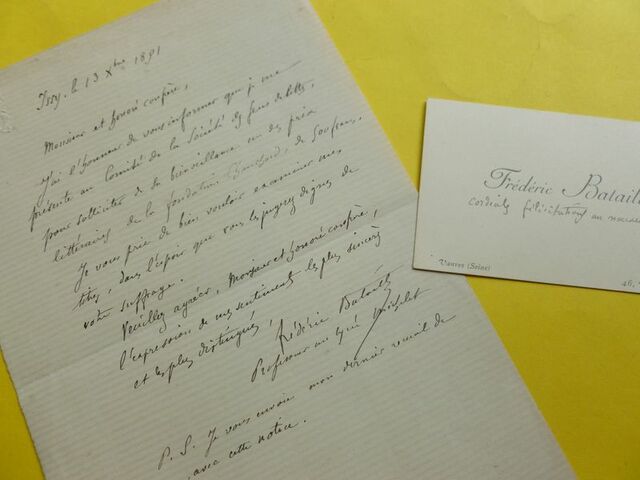 Issy, le 13 Xbre 1891
Monsieur et honoré confrère,
J'ai l'honneur de vous informer que je me
présente au Comité de la Société des Gens de lettres,
pour solliciter de sa bienveillance un des prix
littéraires de la fondation Chauchard, de 500 francs,
Je vous prie de bien vouloir examiner mes
titres, dans l'espoir que vous les jugerez dignes de
votre suffrage.
Veuillez agréer, Monsieur et honoré confrère,
l'expression de mes sentiments les plus sincères
et les plus distingués,
Frédéric Bataille
Professeur au lycée Michelet
P. S. Je vous envoie mon dernier recueil de
avec cette notice.
Frédéric Bataill
cordiales félicitations au nouveau
Vanves (Seine)
46,